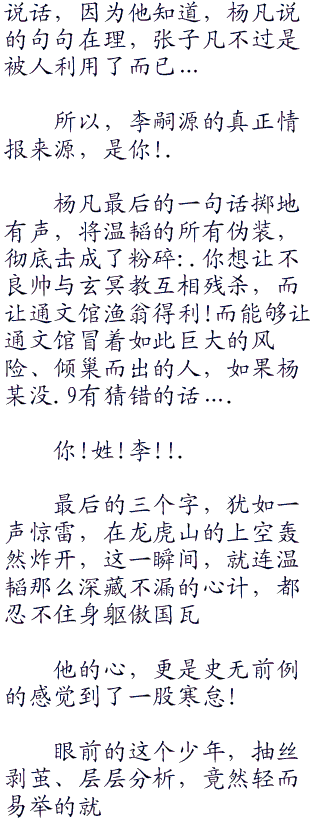 说话，因为他知道，杨凡说
的句句在理，张子凡不过是
被人利用了而已…
所以，李嗣源的真正情
报来源，是你!.
杨凡最后的一句话掷地
有声，将温韬的所有伪装，
彻底击成了粉碎:.你想让不
良帅与玄冥教互相残杀，而
让通文馆渔翁得利!而能够让
通文馆冒着如此巨大的风
险、倾巢而出的人，如果杨
某没.9有猜错的话….
你!姓!李!!.
最后的三个字，犹如一
声惊雷，在龙虎山的上空轰
然炸开，这一瞬间，就连温
韬那么深藏不漏的心计，都
忍不住身躯傲国瓦
他的心，更是史无前例
的感觉到了一股寒怠!
眼前的这个少年，抽丝
剥茧、层层分析，竟然轻而
易举的就